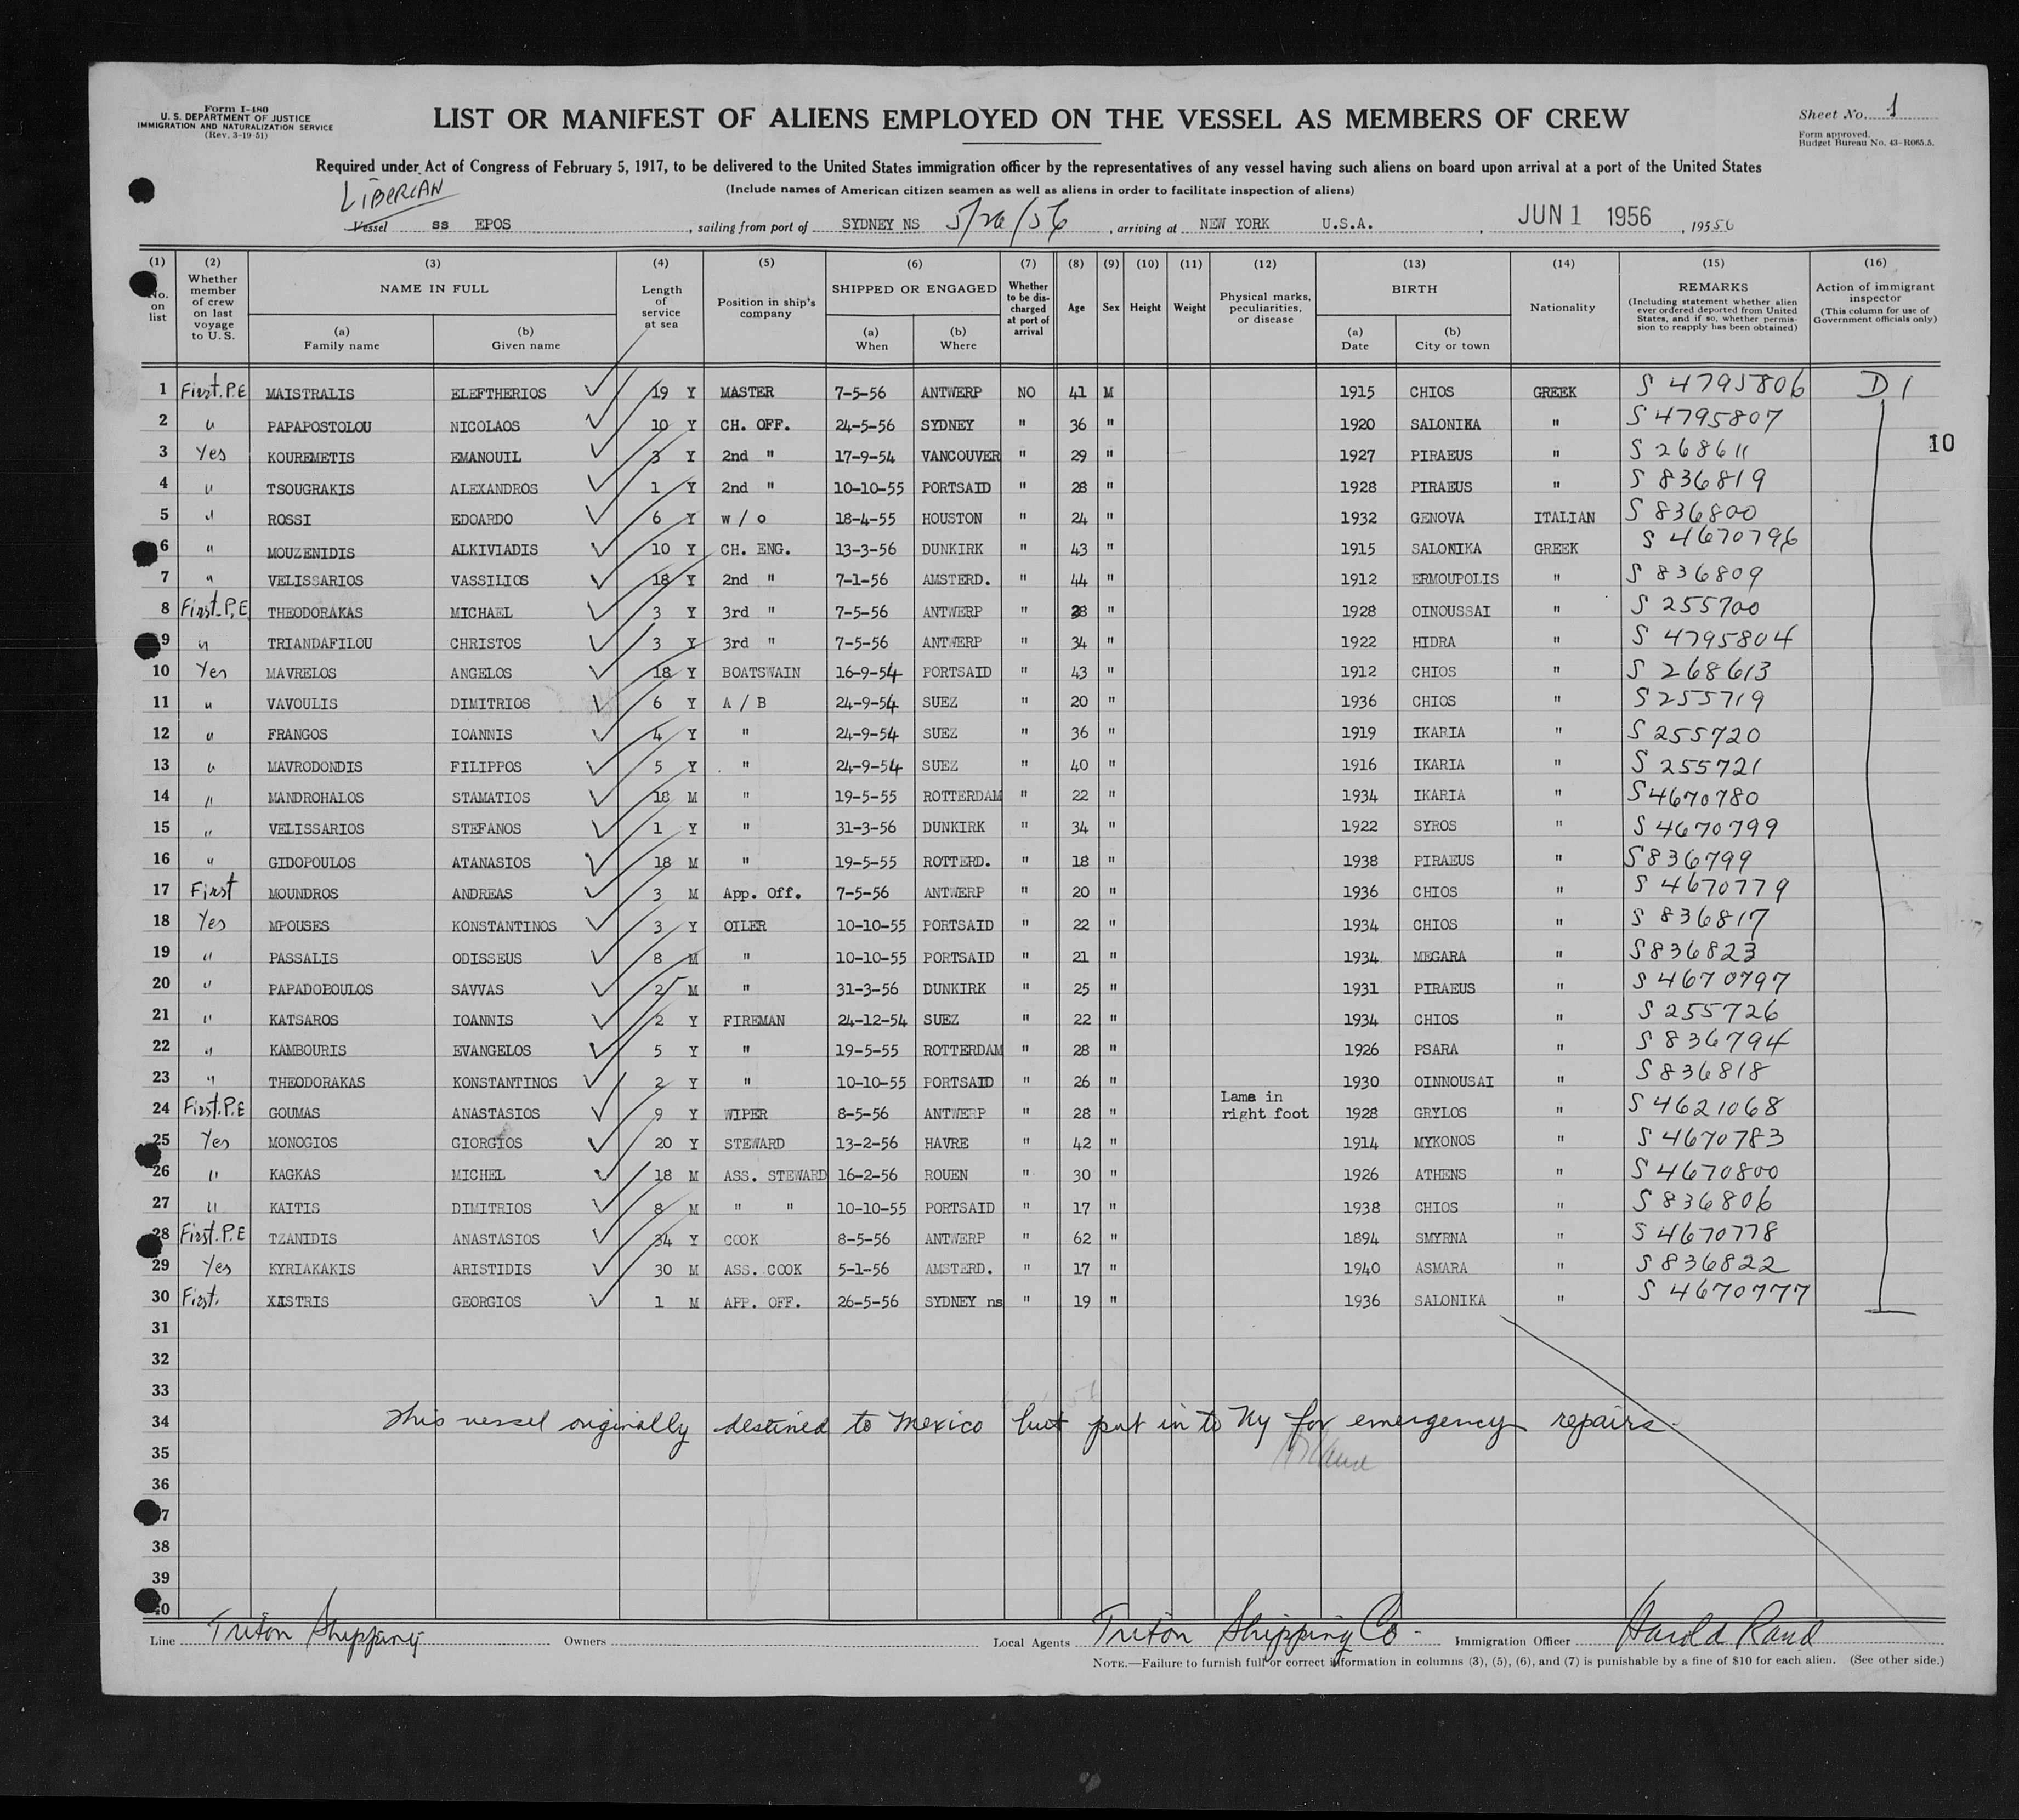 Form I-480
U. S. DEPARTMENT OF JUSTICE
IMMIGRATION AND NATURALIZATION SERVICE
(Rev. 3-19-51)
LIST OR MANIFEST OF ALIENS EMPLOYED ON THE VESSEL AS MEMBERS OF CREW
Sheet No. 1
Form approved.
Budget Bureau No. 43-R065.5.
Required under Act of Congress of February 5, 1917, to be delivered to the United States immigration officer by the representatives of any vessel having such aliens on board upon arrival at a port of the United States
(Include names of American citizen seamen as well as aliens in order to facilitate inspection of aliens)
LIBERIAN
Vessel ss EPOS, sailing from port of SYDNEY NS 5/26/56, arriving at NEW YORK U.S.A., JUN 1 1956, 19556
(1) (2) (3) (4) (5) (6) (7) (8) (9) (10) (11) (12) (13) (14) (15) (16)
No. on list
Whether member of crew on last voyage to U. S.
NAME IN FULL
(a) Family name
(b) Given name
Length of service at sea
Position in ship's company
SHIPPED OR ENGAGED
(a) When
(b) Where
Whether to be discharged at port of arrival
Age
Sex
Height
Weight
Physical marks, peculiarities, or disease
BIRTH
(a) Date
(b) City or town
Nationality
REMARKS
(Including statement whether alien ever ordered deported from United States, and if so, whether permission to reapply has been obtained)
Action of immigrant inspector
(This column for use of Government officials only)
1 First. P.E MAISTRALIS ELEFTHERIOS 19 Y MASTER 7-5-56 ANTWERP NO 41 M 1915 CHIOS GREEK S 4795806 D 1
2 " PAPAPOSTOLOU NICOLAOS 10 Y CH. OFF. 24-5-56 SYDNEY " 36 " 1920 SALONIKA " S 4795807
10
3 Yes KOUREMETIS EMANOUIL 3 Y 2nd " 17-9-54 VANCOUVER " 29 " 1927 PIRAEUS " S 268611
4 " TSOUGRAKIS ALEXANDROS 1 Y 2nd " 10-10-55 PORTSAID " 28 " 1928 PIRAEUS " S 836819
5 " ROSSI EDOARDO 6 Y w / o 18-4-55 HOUSTON " 24 " 1932 GENOVA ITALIAN S 836800
6 " MOUZENIDIS ALKIVIADIS 10 Y CH. ENG. 13-3-56 DUNKIRK " 43 " 1915 SALONIKA GREEK S 4670796
7 " VELISSARIOS VASSILIOS 18 Y 2nd " 7-1-56 AMSTERD. " 44 " 1912 ERMOUPOLIS " S 836809
8 First. P.E THEODORAKAS MICHAEL 3 Y 3rd " 7-5-56 ANTWERP " 28 " 1928 OINOUSSAI " S 255700
9 " TRIANDAFILOU CHRISTOS 3 Y 3rd " 7-5-56 ANTWERP " 34 " 1922 HIDRA " S 4795804
10 Yes MAVRELOS ANGELOS 18 Y BOATSWAIN 16-9-54 PORTSAID " 43 " 1912 CHIOS " S 268613
11 " VAVOULIS DIMITRIOS 6 Y A / B 24-9-54 SUEZ " 20 " 1936 CHIOS " S 255719
12 " FRANGOS IOANNIS 4 Y " 24-9-54 SUEZ " 36 " 1919 IKARIA " S 255720
13 " MAVRODONDIS FILIPPOS 5 Y " 24-9-54 SUEZ " 40 " 1916 IKARIA " S 255721
14 " MANDROHALOS STAMATIOS 18 M " 19-5-55 ROTTERDAM " 22 " 1934 IKARIA " S 4670780
15 " VELISSARIOS STEFANOS 1 Y " 31-3-56 DUNKIRK " 34 " 1922 SYROS " S 4670799
16 " GIDOPOULOS ATANASIOS 18 M " 19-5-55 ROTTERD. " 18 " 1938 PIRAEUS " S 836799
17 First MOUNDROS ANDREAS 3 M App. Off. 7-5-56 ANTWERP " 20 " 1936 CHIOS " S 4670779
18 Yes MPOUSES KONSTANTINOS 3 Y OILER 10-10-55 PORTSAID " 22 " 1934 CHIOS " S 836817
19 " PASSALIS ODISSEUS 8 M " 10-10-55 PORTSAID " 21 " 1934 MEGARA " S 836823
20 " PAPADOPOULOS SAVVAS 2 M " 31-3-56 DUNKIRK " 25 " 1931 PIRAEUS " S 4670797
21 " KATSAROS IOANNIS 2 Y FIREMAN 24-12-54 SUEZ " 22 " 1934 CHIOS " S 255726
22 " KAMBOURIS EVANGELOS 5 Y " 19-5-55 ROTTERDAM " 28 " 1926 PSARA " S 836794
23 " THEODORAKAS KONSTANTINOS 2 Y " 10-10-55 PORTSAID " 26 " 1930 OINNOUSAI " S 836818
24 First. P.E GOUMAS ANASTASIOS 9 Y WIPER 8-5-56 ANTWERP " 28 " Lame in right foot 1928 GRYLOS " S 4621068
25 Yes MONOGIOS GIORGIOS 20 Y STEWARD 13-2-56 HAVRE " 42 " 1914 MYKONOS " S 4670783
26 " KAGKAS MICHEL 18 M ASS. STEWARD 16-2-56 ROUEN " 30 " 1926 ATHENS " S 4670800
27 " KAITIS DIMITRIOS 8 M " " 10-10-55 PORTSAID " 17 " 1938 CHIOS " S 836806
28 First. P.E TZANIDIS ANASTASIOS 34 Y COOK 8-5-56 ANTWERP " 62 " 1894 SMYRNA " S 4670778
29 Yes KYRIAKAKIS ARISTIDIS 30 M ASS. COOK 5-1-56 AMSTERD. " 17 " 1940 ASMARA " S 836822
30 First. XISTRIS GEORGIOS 1 M APP. OFF. 26-5-56 SYDNEY ns " 19 " 1936 SALONIKA " S 4670777
31
32
33
34 This vessel originally destined to Mexico but put in to Ny for emergency repairs.
35
36
37
38
39
40
Line Triton Shipping Owners Local Agents Triton Shipping Co. Immigration Officer Harold Rand
NOTE.—Failure to furnish full or correct information in columns (3), (5), (6), and (7) is punishable by a fine of $10 for each alien. (See other side.)